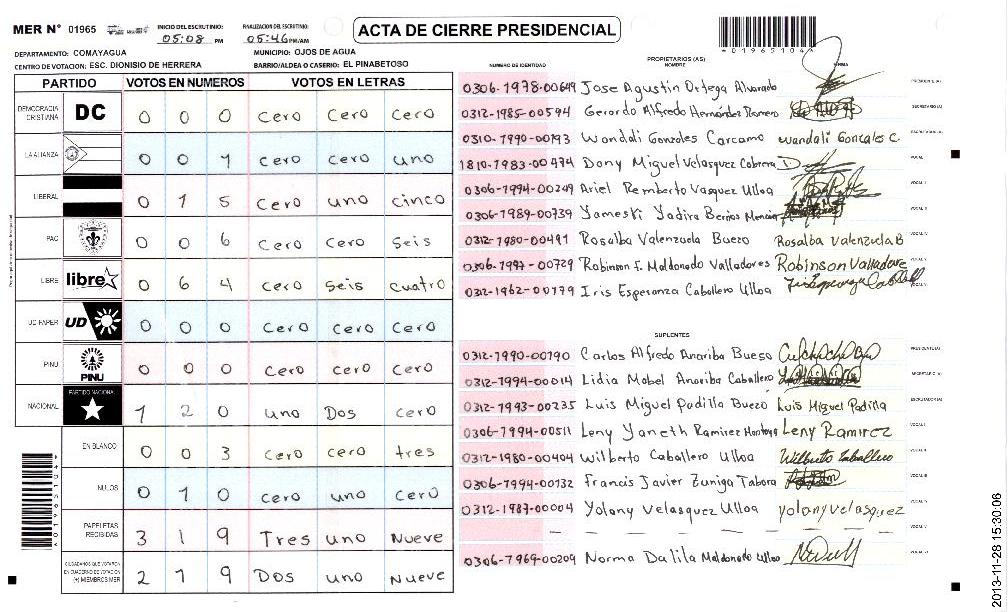 MER N° 01965 INICIO DEL ESCRUTINIO: 05:08 PM FINALIZACION DEL ESCRUTINIO: 05:46 PM/AM
ACTA DE CIERRE PRESIDENCIAL
*019651044*
DEPARTAMENTO: COMAYAGUA MUNICIPIO: OJOS DE AGUA
CENTRO DE VOTACION: ESC. DIONISIO DE HERRERA BARRIO/ALDEA O CASERIO: EL PINABETOSO
PARTIDO VOTOS EN NUMEROS VOTOS EN LETRAS
DEMOCRACIA CRISTIANA DC 0 0 0 cero cero cero
LA ALIANZA 0 0 1 cero cero uno
LIBERAL 0 1 5 cero uno cinco
PAC 0 0 6 cero cero seis
LIBRE libre 0 6 4 cero seis cuatro
UD-FAPER UD 0 0 0 cero cero cero
PINU PINU 0 0 0 cero cero cero
NACIONAL PARTIDO NACIONAL 1 2 0 uno Dos cero
EN BLANCO 0 0 3 cero cero tres
NULOS 0 1 0 cero uno cero
PAPELETAS RECIBIDAS 3 1 9 Tres uno Nueve
CIUDADANOS QUE VOTARON EN CUADERNO DE VOTACION (+) MIEMBROS MER 2 1 9 Dos uno Nueve
NUMERO DE IDENTIDAD PROPIETARIOS (AS) NOMBRE FIRMA
0306-1978-00649 Jose Agustin Ortega Alvarado PRESIDENTE (A)
0312-1985-00594 Gerardo Alfredo Hernández Romero SECRETARIO (A)
0310-1990-00193 Wandali Gonzales Carcamo wandali Gonzales C. ESCRUTADOR (A)
1810-1983-00474 Dony Miguel Velasquez Cabrera VOCAL I
0306-1994-00249 Ariel Remberto Vasquez Ulloa VOCAL II
0306-1989-00739 Yameski Yadira Berrios VOCAL III
0312-1980-00491 Rosalba Valenzuela Buezo Rosalba Valenzuela B VOCAL IV
0306-1997-00729 Robinson F. Maldonado Valladares Robinson Valladares VOCAL V
0312-1962-00179 Iris Esperanza Caballero Ulloa
SUPLENTES
0312-1990-00190 Carlos Alfredo Anariba Bueso PRESIDENTE (A)
0312-1994-00014 Lidia Mabel Anariba Caballero SECRETARIO (A)
0312-1993-00235 Luis Miguel Padilla Buezo Luis Miguel Padilla ESCRUTADOR (A)
0306-1994-00511 Leny Yaneth Ramirez Montoya Leny Ramirez VOCAL I
0312-1980-00404 Wilberto Caballero Ulloa Wilberto Caballero
0306-1994-00132 Francis Javier Zuniga Tabora VOCAL III
0312-1987-00004 Yolany Velasquez Ulloa yolany velasquez VOCAL IV
VOCAL V
0306-1969-00209 Norma Dalila Maldonado Ulloa
2013-11-28 15:30:06